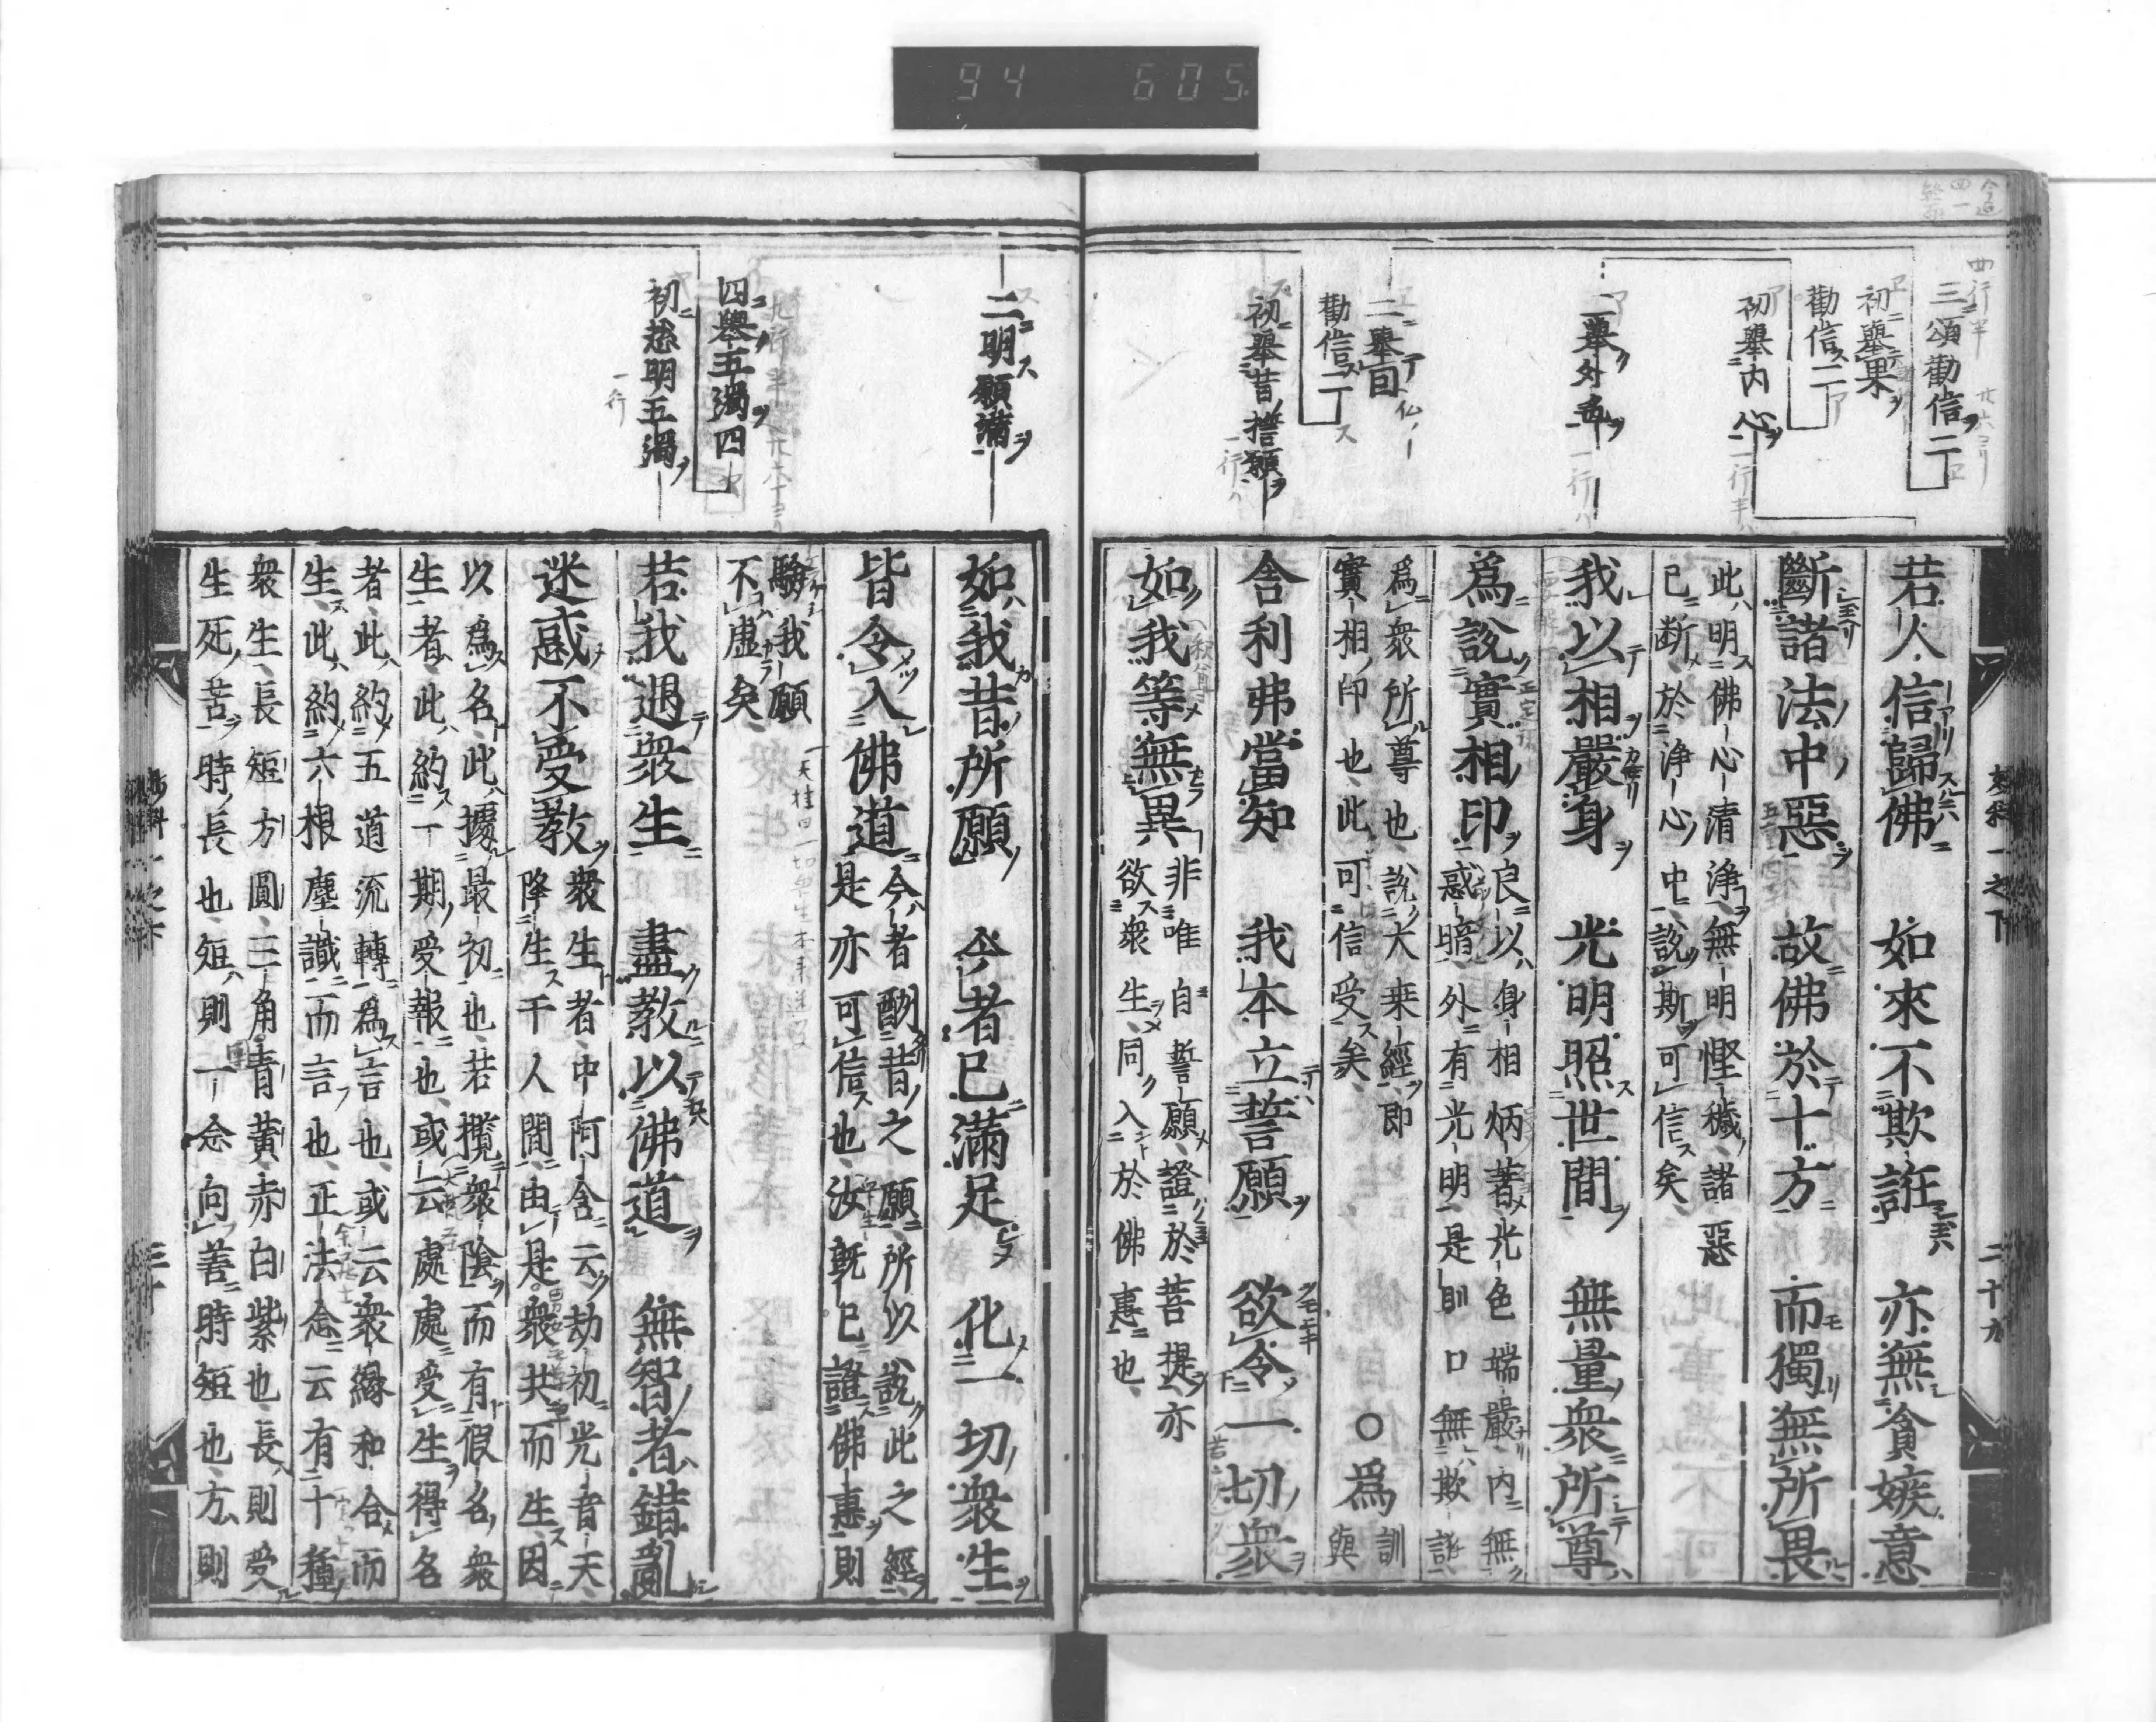 94 605
三頌勸信二
初舉果
勸信二
初舉内心
二舉外色
二舉因
勸信二
初舉昔誓願
若人信歸佛　如來不欺誑　亦無貪嫉意
斷諸法中惡　故佛於十方　而獨無所畏
此明佛心清淨無明慳穢諸惡
已断於淨心中說斯可信矣
我以相嚴身　光明照世間　無量衆所尊
爲說實相印
良以身相炳著光色端嚴内無
惑暗外有光明是則口無欺誑
爲衆所尊也說大乗經即
實相印也此可信受矣
○爲
訓
與
舍利弗當知　我本立誓願　欲令一切衆
如我等無異
非唯自誓願證於菩提亦
欲衆生同入於佛惠也
二十九
二明願滿
四舉五濁四
初總明五濁
一行
如我昔所願　今者已滿足　化一切衆生
皆令入佛道
今者酬昔之願所以說此之經
是亦可信也汝既已證佛惠則
驗我願
不虛矣
若我遇衆生　盡教以佛道　無智者錯亂
迷惑不受教
衆生者中阿含云劫初光音天
降生千人間由是衆共而生因
以爲名此據最初也若攬衆陰而有假名衆
生者此約一期受報也或云處處受生得名
者此約五道流轉爲言也或云衆緣和合而
生此約六根塵識而言也正法念云有十種
衆生長短方圓三角青黃赤白紫也長則受
生死苦時長也短則一念向善時短也方則
三十